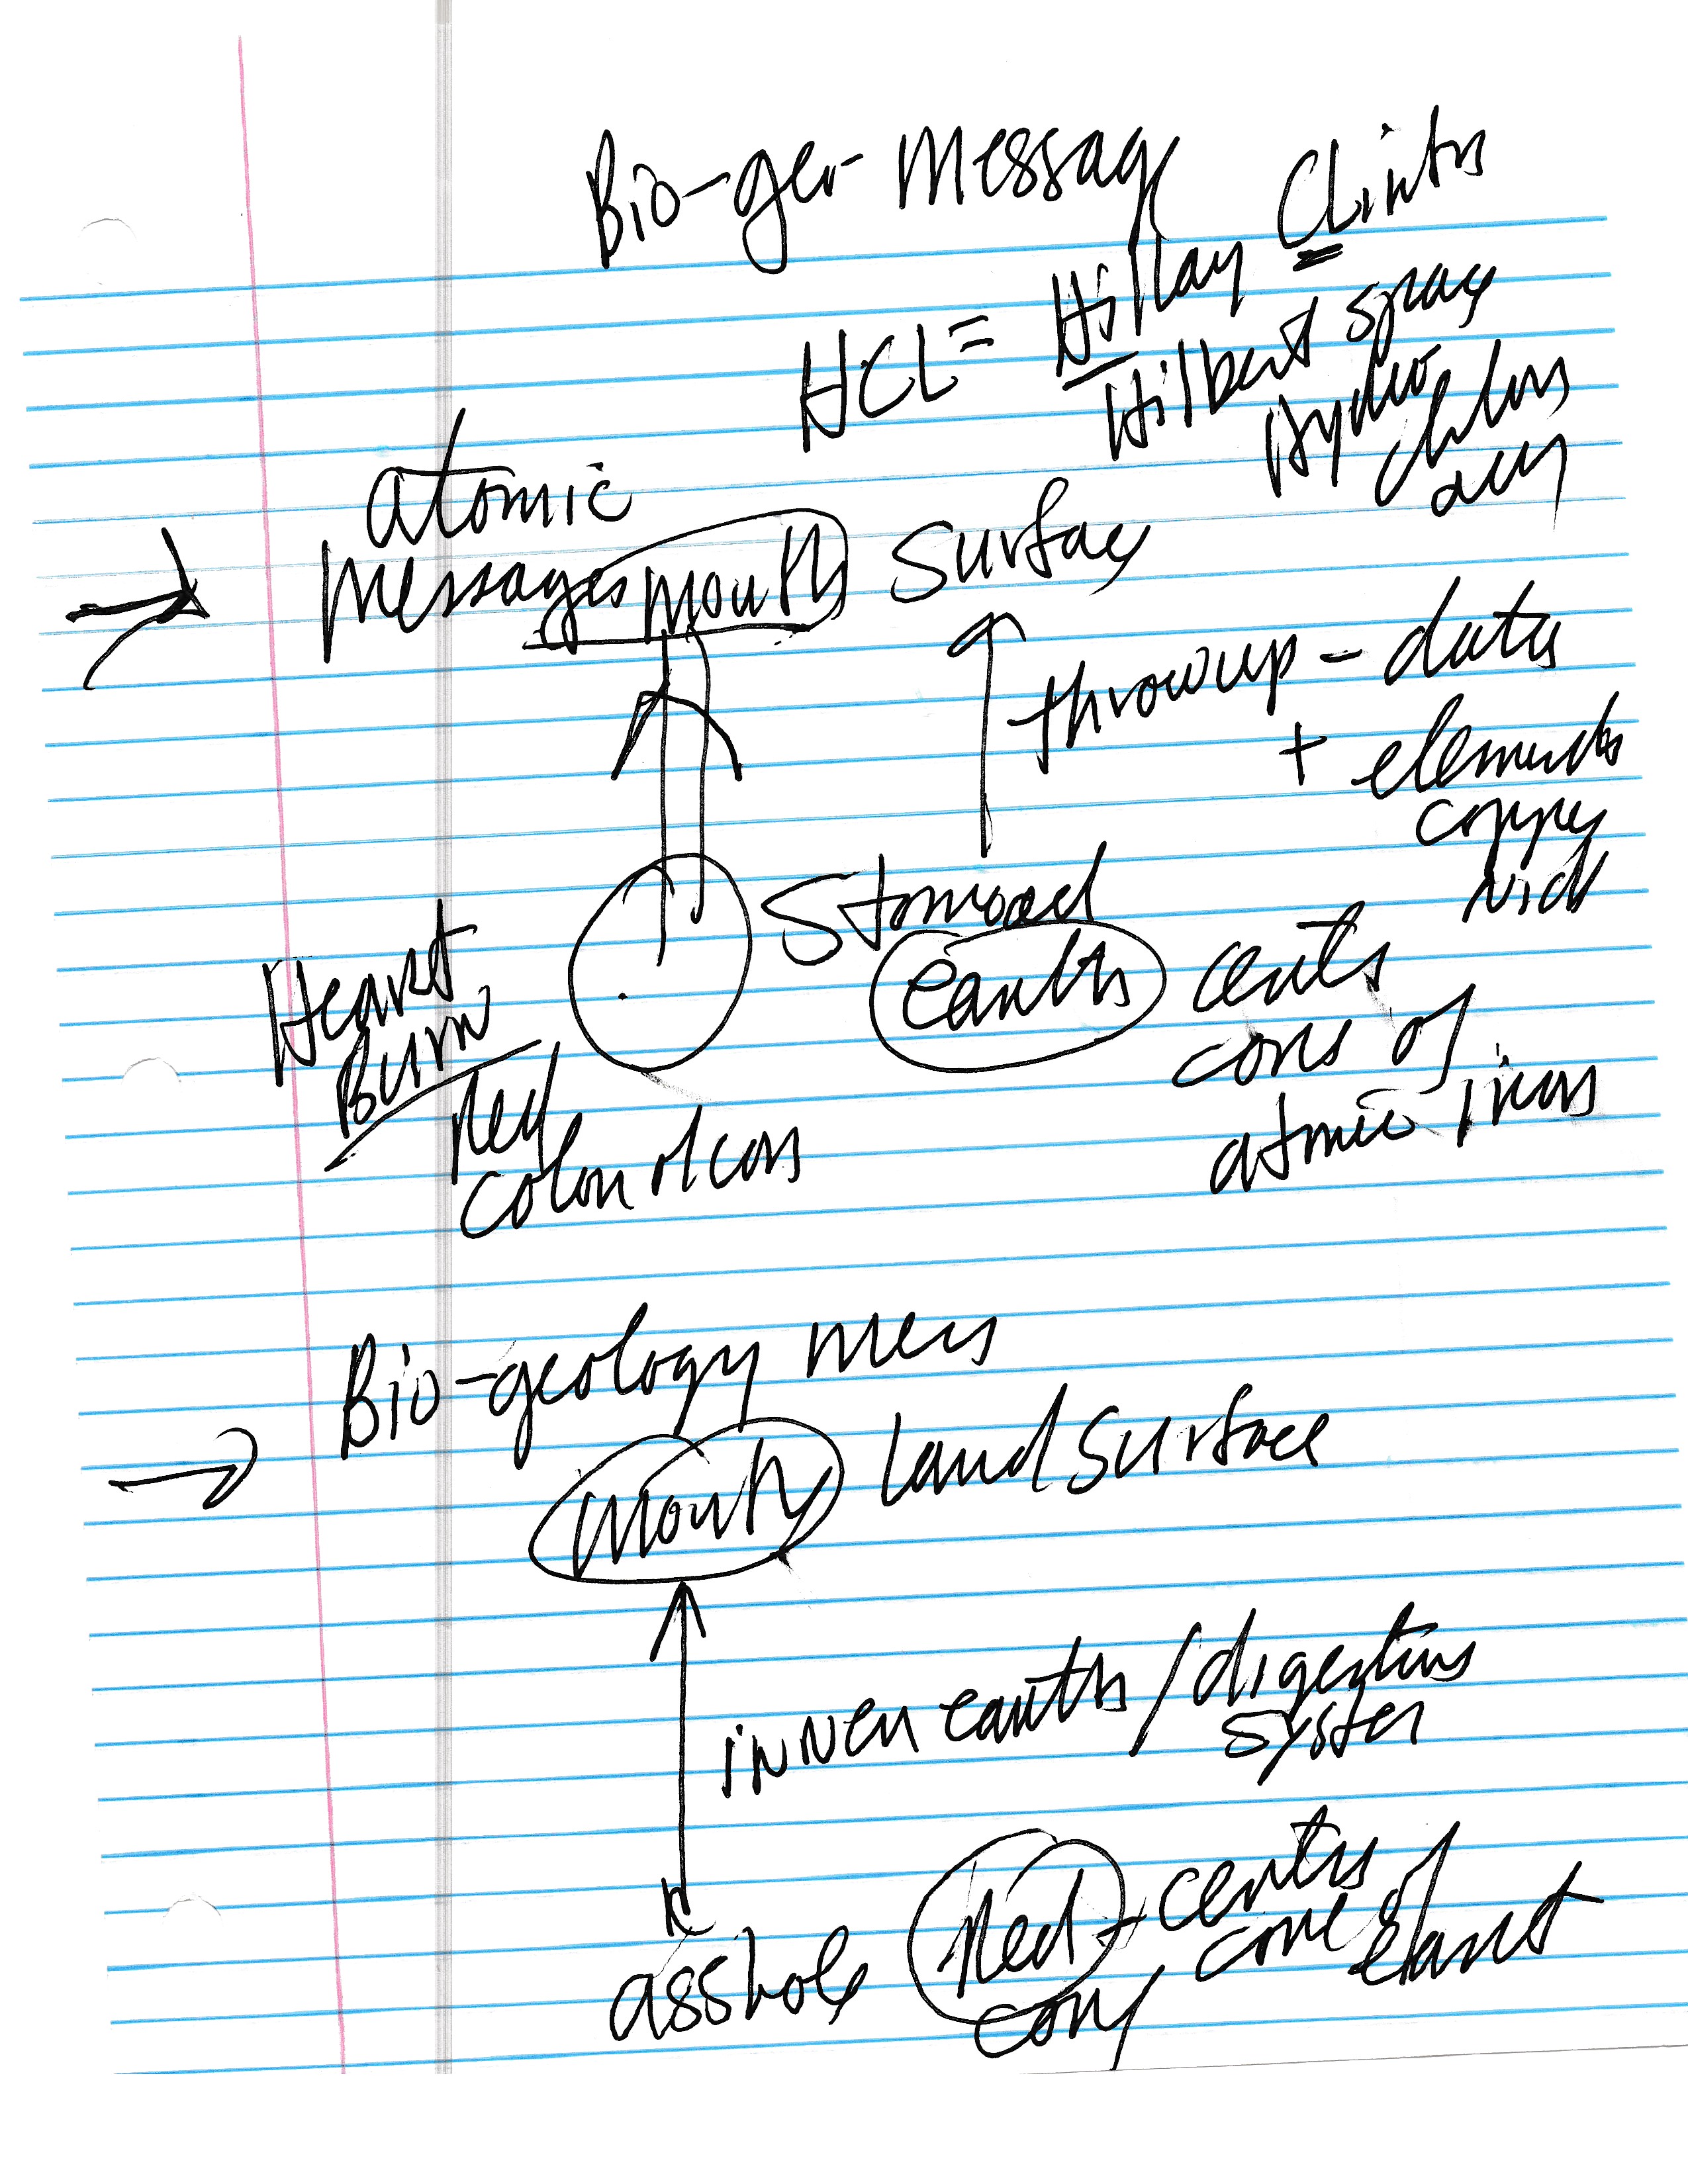 Bio-geo-message
HCL = Hillary Clinton
Hilbert space
Hydro
chloric
atomic
messages mouth surface
throwup - data
+ elements
copper
nick
Stomach
Heart
Burn,
earth center
core of
Red
atomic iron
color of core
Bio-geology mess
mouth land surface
inner earth / digestive
system
asshole Red center
core planet
core